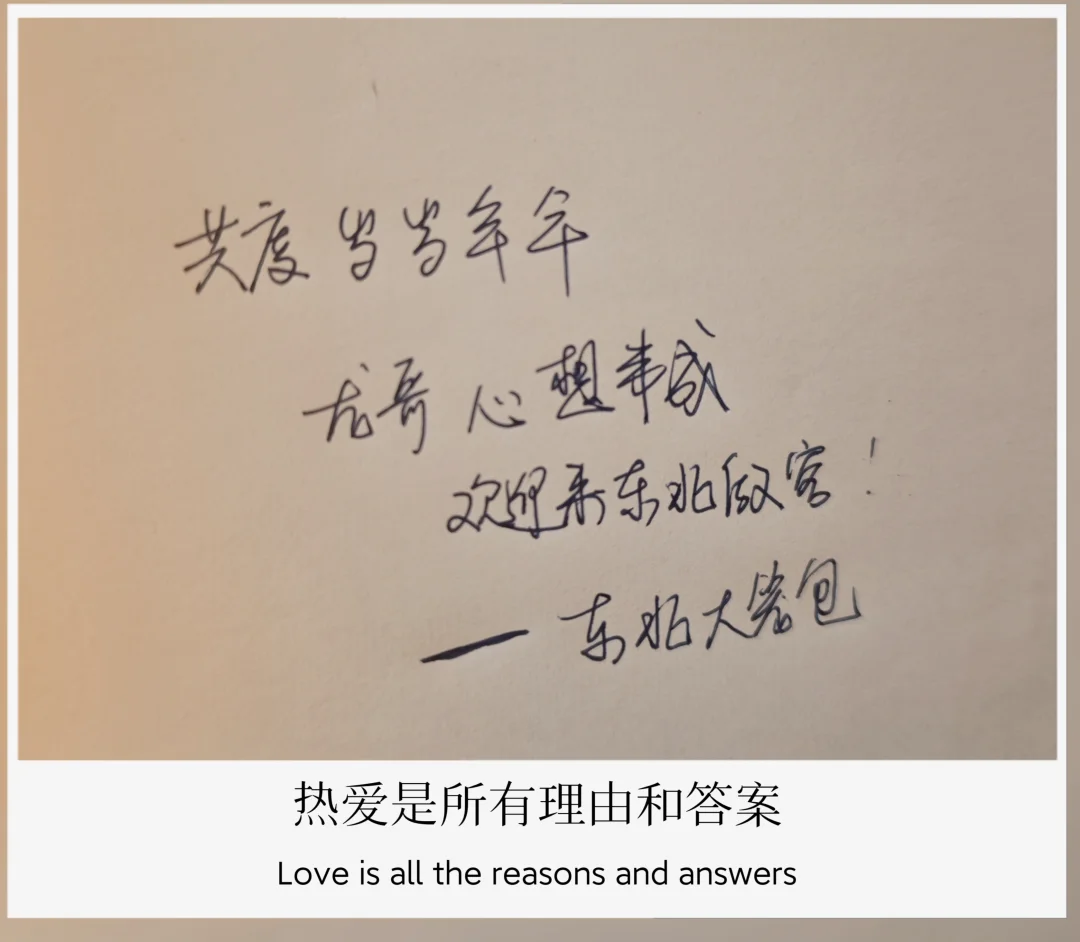 共度岁岁年年
龙哥 心想事成
欢迎来东北做客！
— 东北大答包
热爱是所有理由和答案
Love is all the reasons and answers